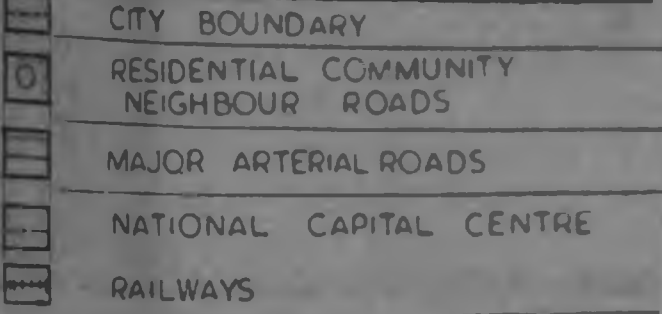 CITY BOUNDARY
RESIDENTIAL COMMUNITY
NEIGHBOUR ROADS
MAJOR ARTERIAL ROADS
NATIONAL CAPITAL CENTRE
RAILWAYS